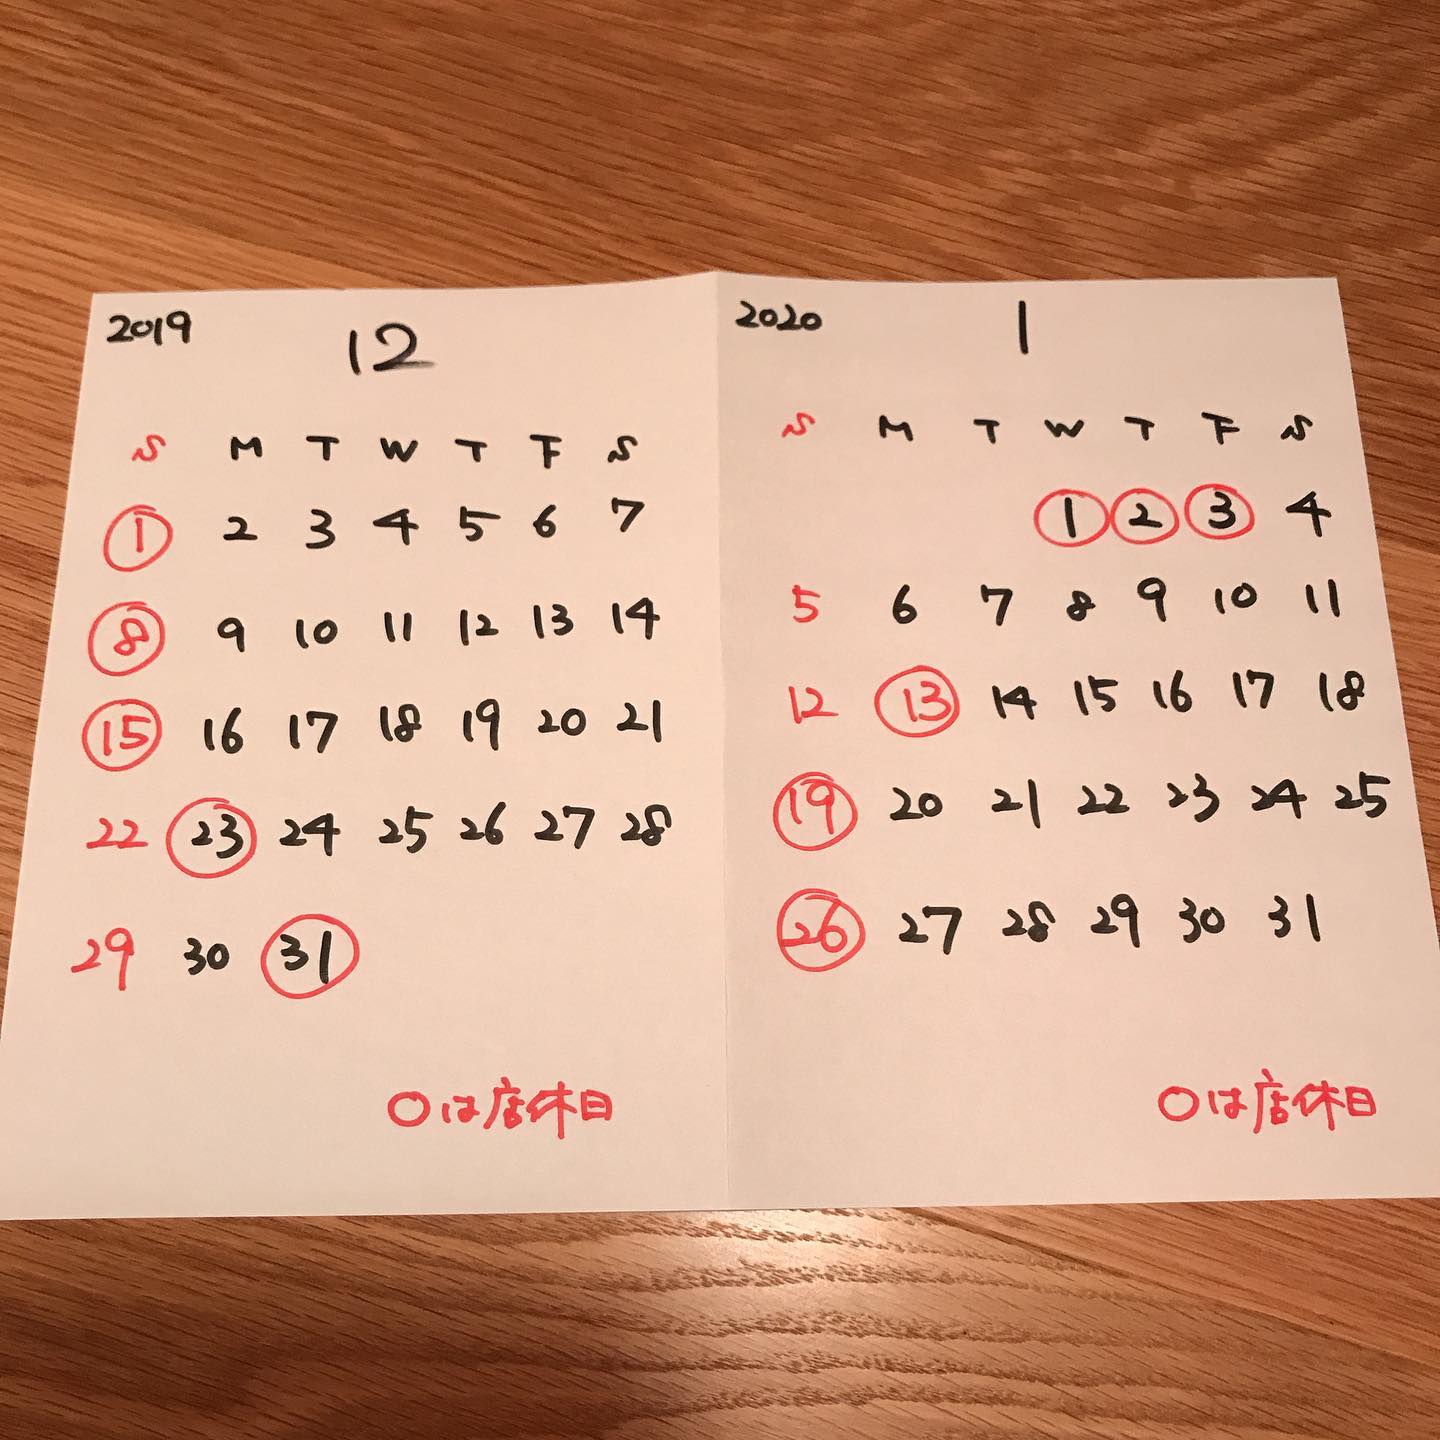 2019 12
S M T W T F S
1 2 3 4 5 6 7
8 9 10 11 12 13 14
15 16 17 18 19 20 21
22 23 24 25 26 27 28
29 30 31
○は店休日
2020 1
S M T W T F S
1 2 3 4
5 6 7 8 9 10 11
12 13 14 15 16 17 18
19 20 21 22 23 24 25
26 27 28 29 30 31
○は店休日